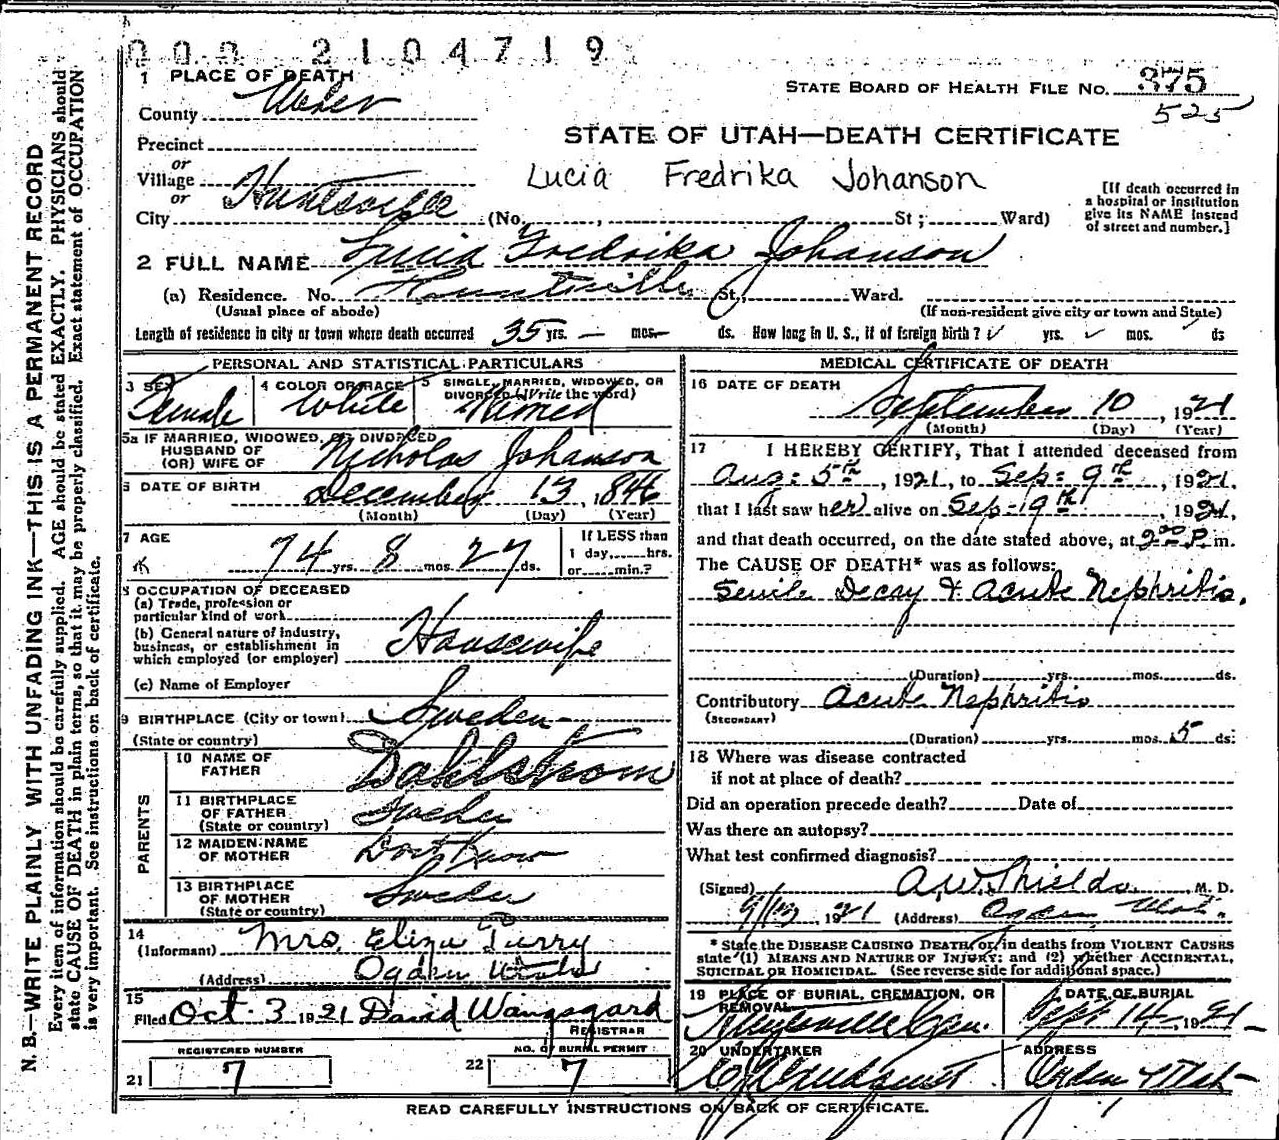 000 2104719
1 PLACE OF DEATH
County Weber
STATE BOARD OF HEALTH FILE NO. 375
525
Precinct
or
Village
or
City Huntsville (No. , St ; Ward)
STATE OF UTAH—DEATH CERTIFICATE
Lucia Fredrika Johanson
[If death occurred in
a hospital or institution
give its NAME instead
of street and number.]
2 FULL NAME Lucia Fredrika Johanson
(a) Residence. No. Huntsville St, Ward.
(Usual place of abode) (If non-resident give city or town and State)
Length of residence in city or town where death occurred 35 yrs. — mos— ds. How long in U. S., if of foreign birth? yrs. mos. ds
PERSONAL AND STATISTICAL PARTICULARS
3 SEX 4 COLOR OR RACE 5 SINGLE, MARRIED, WIDOWED, OR
DIVORCED (Write the word)
Female White
5a IF MARRIED, WIDOWED, OR DIVORCED
HUSBAND OF
(OR) WIFE OF Nicholas Johanson
6 DATE OF BIRTH December 13, 1846
(Month) (Day) (Year)
7 AGE If LESS than
74 yrs. 8 mos. 27 ds. 1 day, hrs.
or min.?
8 OCCUPATION OF DECEASED
(a) Trade, profession or
particular kind of work
(b) General nature of industry,
business, or establishment in
which employed (or employer) Housewife
(c) Name of Employer
9 BIRTHPLACE (City or town) Sweden
(State or country)
PARENTS
10 NAME OF
FATHER Dahlstrom
11 BIRTHPLACE
OF FATHER Sweden
(State or country)
12 MAIDEN NAME
OF MOTHER Dont Know
13 BIRTHPLACE
OF MOTHER Sweden
(State or country)
14
(Informant) Mrs. Eliza
(Address) Ogden Utah
15
Filed Oct. 3 1921 David Wangsgard
REGISTRAR
REGISTERED NUMBER NO. OF BURIAL PERMIT
21 7 22 7
MEDICAL CERTIFICATE OF DEATH
16 DATE OF DEATH
September 10, 1921
(Month) (Day) (Year)
17 I HEREBY CERTIFY, That I attended deceased from
Aug: 5th, 1921, to Sep: 9th, 1921,
that I last saw her alive on Sep-9th, 1921,
and that death occurred, on the date stated above, at 2 00 P. m.
The CAUSE OF DEATH* was as follows:
Senile Decay & Acute Nephritis.
(Duration) yrs. mos. ds.
Contributory Acute Nephritis
(SECONDARY)
(Duration) yrs. mos. 5 ds:
18 Where was disease contracted
if not at place of death?
Did an operation precede death? Date of
Was there an autopsy?
What test confirmed diagnosis?
(Signed) A.W. Shields M. D.
1921 (Address) Ogden Utah.
* State the DISEASE CAUSING DEATH, or, in deaths from VIOLENT CAUSES
state (1) MEANS AND NATURE OF INJURY; and (2) whether ACCIDENTAL,
SUICIDAL OR HOMICIDAL. (See reverse side for additional space.)
19 PLACE OF BURIAL, CREMATION, OR
REMOVAL DATE OF BURIAL
Sept 14, 1921
20 UNDERTAKER ADDRESS
Ogden Utah
READ CAREFULLY INSTRUCTIONS ON BACK OF CERTIFICATE.
N. B.—WRITE PLAINLY WITH UNFADING INK—THIS IS A PERMANENT RECORD
Every item of information should be carefully supplied. AGE should be stated EXACTLY. PHYSICIANS should
state CAUSE OF DEATH in plain terms, so that it may be properly classified. Exact statement of OCCUPATION
is very important. See instructions on back of certificate.